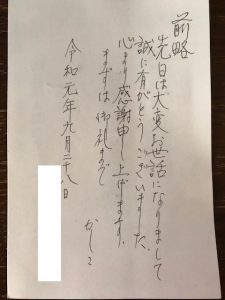 前略
先日は大変お世話になりまして
誠に有がとうございました。
心より感謝申し上げます。
まずは御礼まで
かしこ
令和元年九月二十八日